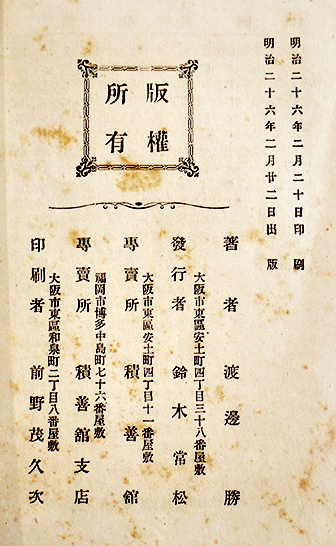 明治二十六年二月二十日印刷
明治二十六年二月廿二日出版
版權
所有
著者 渡邊勝
大阪市東區安土町四丁目三十八番屋敷
發行者 鈴木常松
大阪市東區安土町四丁目十一番屋敷
專賣所 積善舘
福岡市博多中島町七十六番屋敷
專賣所 積善舘支店
大阪市東區和泉町二丁目八番屋敷
印刷者 前野茂久次